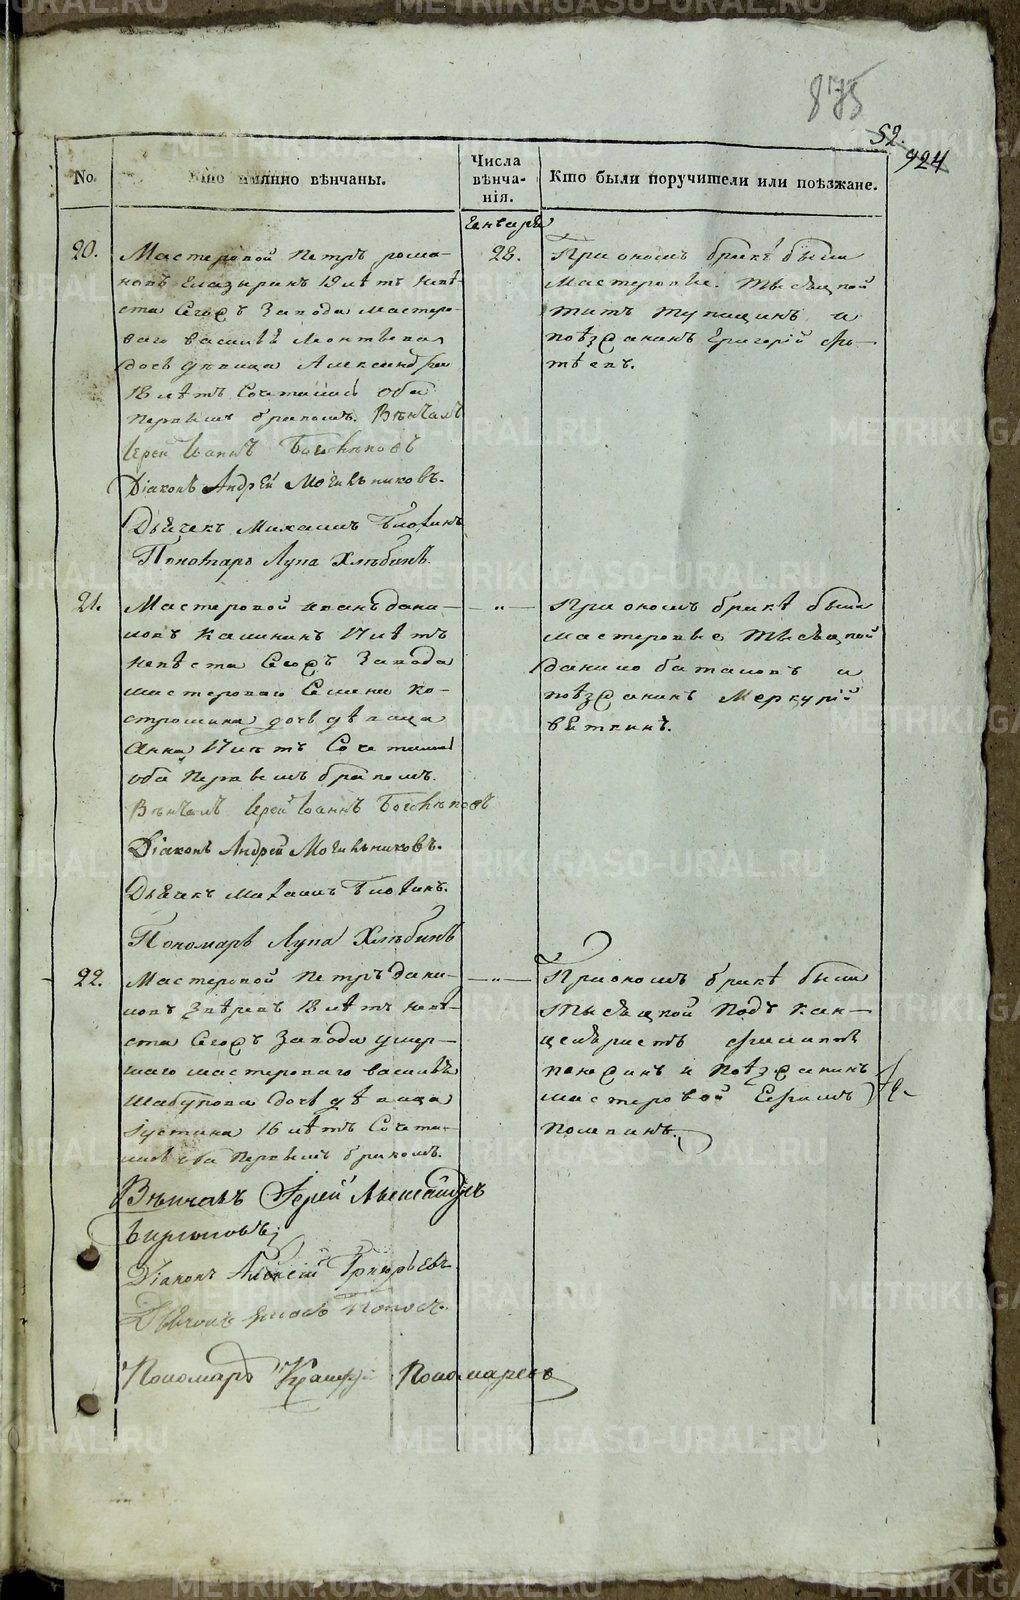 875
52.
924
No.
Кто имянно вѣнчаны.
Числа вѣнча-нія.
Кто были поручители или поѣзжане.
Генваря
20.
Мастеровой Петръ рома-
новъ Глазыринъ 19 лѣтъ невѣ-
ста Сегожъ Завода мастеро-
ваго василья
дочь дѣвица Александра
18 лѣтъ Сочетались оба
первымъ бракомъ. Вѣнчалъ
Іерей Іоаннъ
Діаконъ Андрей Могильниковъ.
Дьячекъ Михаилъ Блохинъ
Пономарь Лупа Хлѣбинъ.
28.
При ономъ бракѣ были
мастеровые. Тысяцкой
титъ тупицинъ и
поѣзжанинъ григорій фо-
тѣевъ.
21.
Мастеровой иванъ дани-
ловъ Калининъ 17 лѣтъ
невѣста Сегожъ Завода
мастероваго Семена Ко-
стромина дочь дѣвица
Анна 17 лѣтъ Сочетались
оба первымъ бракомъ.
Вѣнчалъ Іерей Іоаннъ
Діаконъ Андрей Могильниковъ.
Дьячекъ Михаилъ Блохинъ.
Пономарь Лупа Хлѣбинъ
— „ —
При ономъ бракѣ были
мастеровые Тысяцкой
данило баталовъ и
поѣзжанинъ Меркурій
вѣткинъ.
22.
Мастеровой Петръ дани-
ловъ Звѣревъ 18 лѣтъ невѣ-
ста Сегожъ Завода умер-
шаго мастероваго василья
Шабурова дочь дѣвица
Іустина 16 лѣтъ Сочета-
лись оба первымъ бракомъ.
Вѣнчалъ Іерей Александръ
Бирюковъ;
Діаконъ Алексій Григорьевъ
Дьячокъ Поповъ.
Пономарь Пономаревъ
— „ —
При ономъ бракѣ были
тысяцкой Подъ кан-
целяристъ филиппъ
и поѣзжанинъ
мастеровой Ефимъ